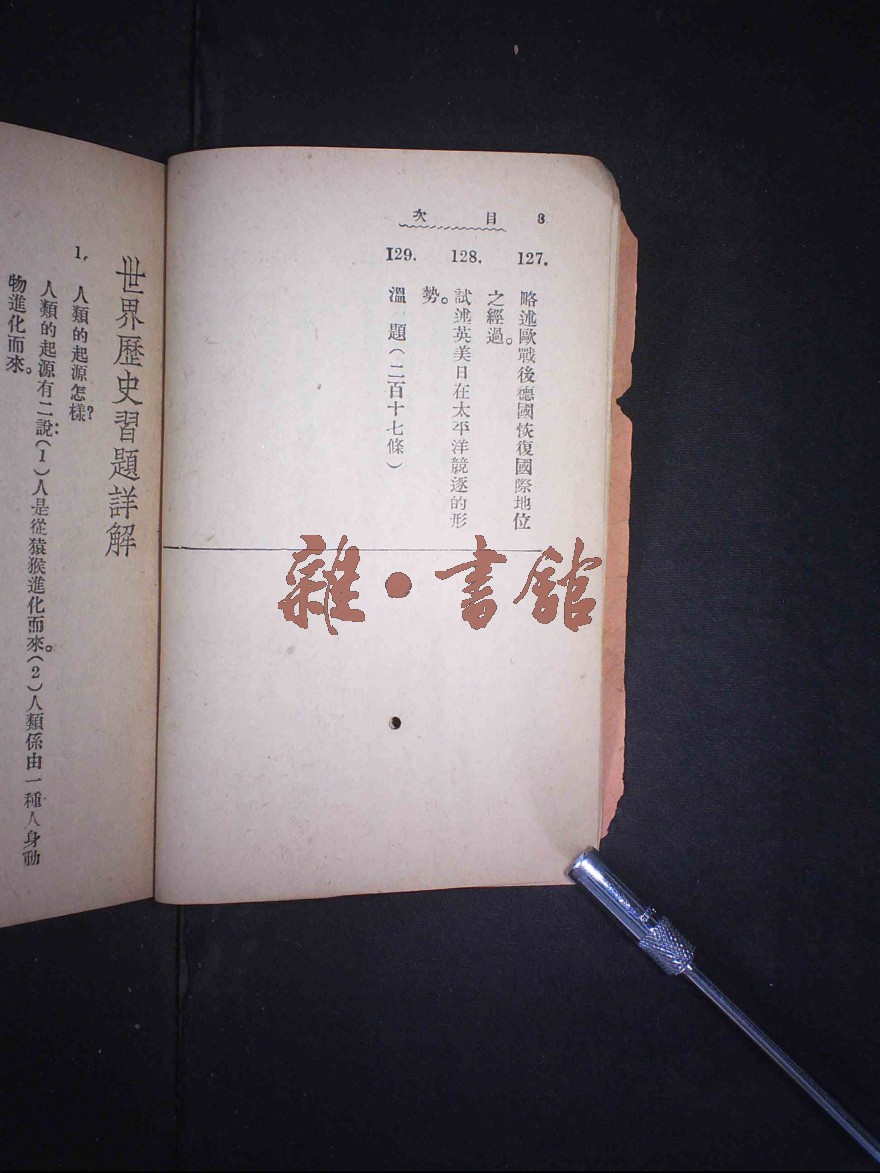 8 目次
127. 略述歐戰後德國恢復國際地位
之經過。
128. 試述英美日在太平洋競逐的形
勢。
129. 溫 題(二百十七條)
雜・書館
世界歷史習題詳解
1. 人類的起源怎樣?
人類的起源有二說:(1)人是從猿猴進化而來。(2)人類係由一種人身動
物進化而來。